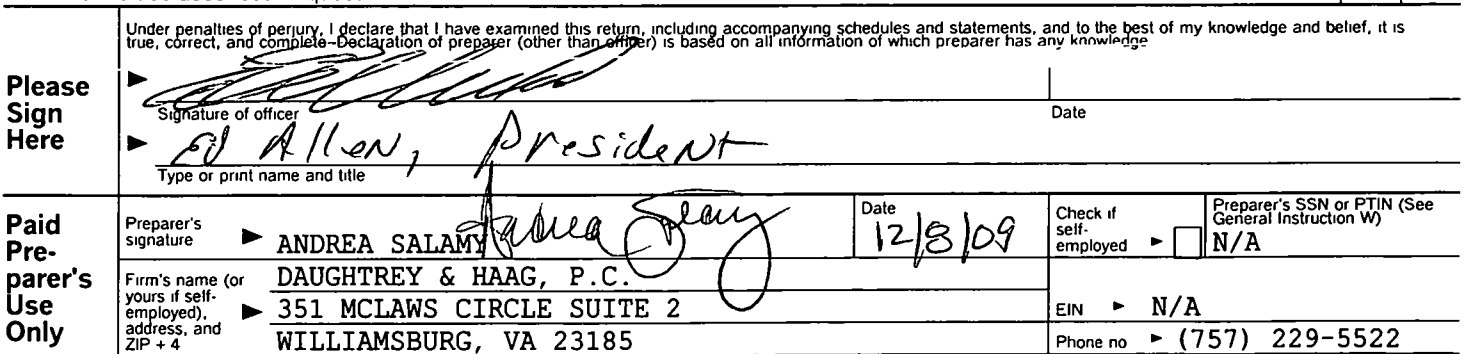 Under penalties of perjury, I declare that I have examined this return, including accompanying schedules and statements, and to the best of my knowledge and belief, it is
true, correct, and complete Declaration of preparer (other than officer) is based on all information of which preparer has any knowledge
Please
Sign
Here
Signature of officer
Date
Ed Allen, President
Type or print name and title
Paid
Pre-
parer's
Use
Only
Preparer's
signature
ANDREA SALAMY
Date
12/8/09
Check if
self-
employed
Preparer's SSN or PTIN (See
General Instruction W)
N/A
Firm's name (or
yours if self-
employed),
address, and
ZIP + 4
DAUGHTREY & HAAG, P.C.
351 MCLAWS CIRCLE SUITE 2
WILLIAMSBURG, VA 23185
EIN N/A
Phone no (757) 229-5522